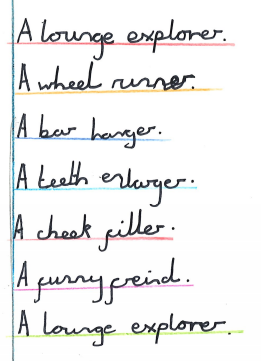 A lounge explorer.
A wheel runner.
A bar hanger.
A teeth enlarger.
A cheek filler.
A furry freind.
A lounge explorer.